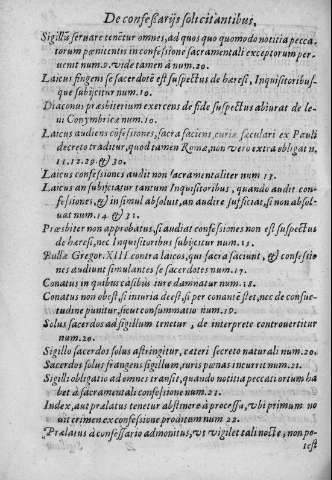 De confessarijs solicitantibus.
Sigillũ seruare tenẽtur omnes, ad quos quo quomodo notitia pecca
torum pœnitentis in confessione sacramentali exceptorum per
uenit num.9. vide tamen à num.20.
Laicus fingens se sacerdotẽ est suspectus de hæresi, Inquisitoribus-
que subijcitur num.10.
Diaconus præsbiterium exercens de fide suspectus abiurat de le-
ni Conymbricæ num.10.
Laicus audiens cõfessiones, sacra faciens, curiæ sæculari ex Pauli
decreto traditur, quod tamen Romæ, non vero extra obligat n.
11.12.29. & 30.
Laicus confessiones audit non sacramentaliter num 13.
Laicus an subijciatur tantum Inquisitoribus, quando audit con-
fessiones, & in simul absoluit, an audire sufficiat, si non absol-
uat num.14 & 31.
Præsbiter non approbatus, si audiat confessiones non est suspectus
de hæresi, nec Inquisitoribus subijcitur num.15.
Bullæ Gregor. XIII contra laicos, qui sacra faciunt, & confessio
nes audiunt simulantes se sacerdotes num.17.
Conatus in quibus casibus iure damnatur num.18.
Conatus non obest, si iniuria deest, si per conantẽ stet, nec de consue-
tudine punitur, sicut consummatio num.19.
Solus sacerdos ad sigillum tenetur, de interprete controuertitur
num.20.
Sigillo sacerdos solus astringitur, cæteri secreto naturali num.20.
Sacerdos solus frangens sigillum, iuris pœnas incurrit num.21.
Sigilli obligatio ad omnes transit, quando notitia peccatorum ha
bet à sacramentali confessione num.21.
Iudex, aut prælatus tenetur abstinere à processu, vbi primum no
uit crimen ex confessione proditum num 22.
Prælatus à confessario admonitus, vs vigilet tali nocte, non po-
test